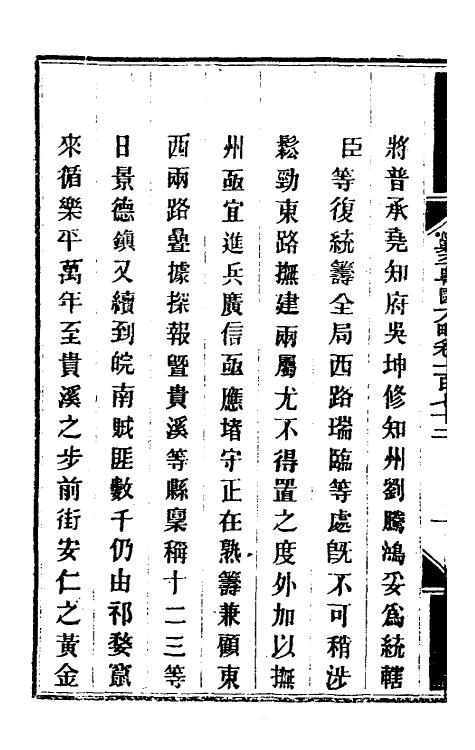 將普承堯知府吳坤修知州劉騰鴻妥爲統轄
臣等復統籌全局西路瑞臨等處旣不可稍涉
鬆勁東路撫建兩屬尤不得置之度外加以撫
州亟宜進兵廣信亟應堵守正在熟籌兼顧東
西兩路疊據探報曁貴溪等縣稟稱十二三等
日景德鎭又續到皖南賊匪數千仍由祁婺竄
來循樂平萬年至貴溪之步前街安仁之黃金